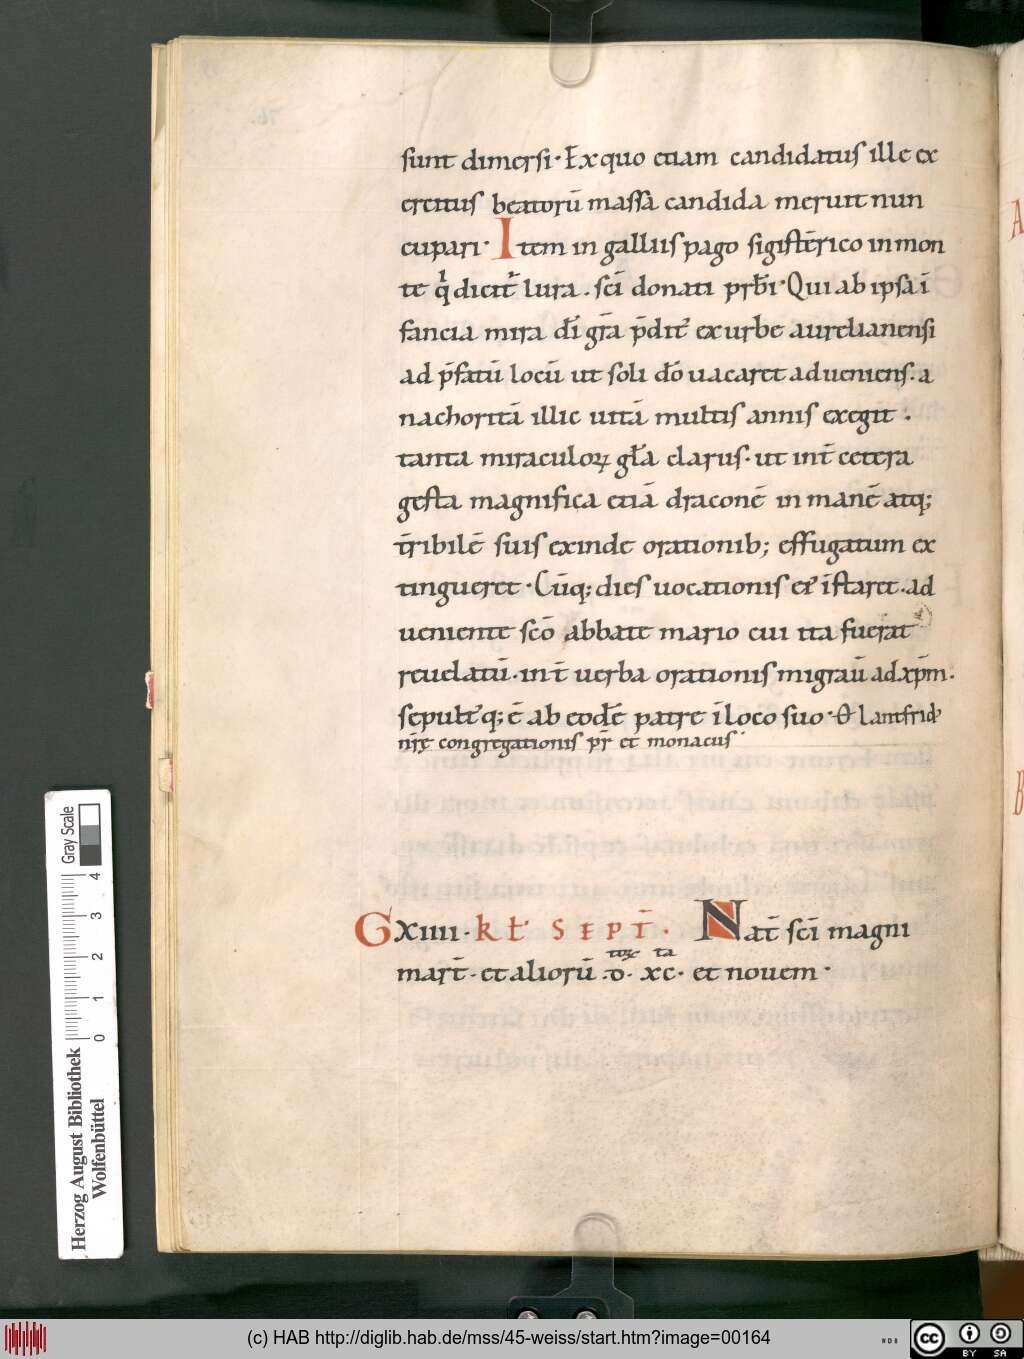 sunt dimersi· Ex quo etiam candidatus ille ex
ercitus beatorū massa candida meruit nun
cupari· Item in galliis pago sigistērico in mon
te q̇ dicit̄ lura. sc̄i donati prb̄i· Qui ab ipsa ī
fancia mira dī gr̄a p̄dit᷒ ex urbe aurelianensi
ad p̄fatū locū ut soli dō uacaret adueniens. a
nachoritā illic uitā multis annis exegit·
tanta miraculoꝝ gl̄a clarus· ut int̄ cetera
gesta magnifica etiā draconē in manē atq;
t̄ribilē suis exinde orationib; effugatum ex
tingueret· Cūq; dies uocationis ei᷒ īstaret. ad
ueniente sc̄o abbate mario cui ita fuerat
reuelatū. int̄ uerba orationis migrauı̄ ad xp̄m.
sepult᷒q; ē ab eodē patre ī loco suo· Θ Lantfrid᷒
nr̄ę congregationis pr̄ et monacus·
G XIIII· KL· SEPT̄· Nat̄ sc̄i magni
mart̄· et aliorū .D. xc· et nouem·
ta
Gray Scale
0 1 2 3 4
Herzog August Bibliothek
Wolfenbüttel
(c) HAB http://diglib.hab.de/mss/45-weiss/start.htm?image=00164
cc BY SA